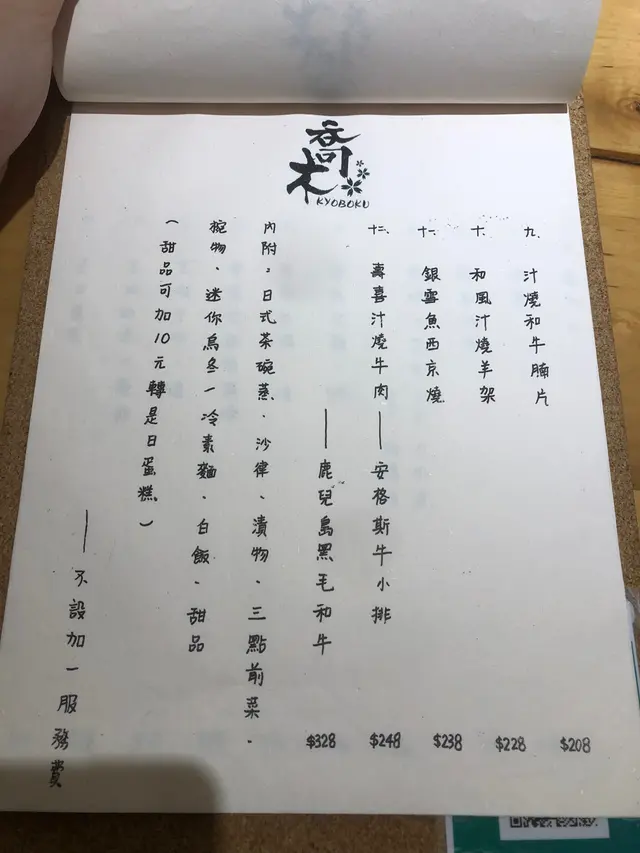 喬木
KYOBOKU
九、汁燒和牛腩片 $208
十、和風汁燒羊架 $228
十一、銀雪魚西京燒 $238
十二、壽喜汁燒牛肉——安格斯牛小排 $248
——鹿兒島黑毛和牛 $328
內附：日式茶碗蒸、沙律、漬物、三點前菜、
椀物、迷你烏冬/冷素麵、白飯、甜品
(甜品可加10元轉是日蛋糕)
——不設加一服務費